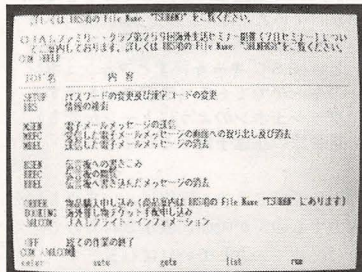 詳しくは BBS①の File Name "TSUHAN" をご覧ください。
JALファミリー・クラブ第259回海外生活セミナー開催(7日セミナー)につい
てご案内しております。詳しくは BBS①の File Name をご覧ください。
COM :HELP
内 容
SETUP パスワードの変更及び漢字コードの変更
BBS 情報の検索
電子メールメッセージの送信
受信した電子メールメッセージの画面への取り出し及び消去
送信した電子メールメッセージの消去
伝言板への書きこみ
伝言板の閲覧
伝言板へ書き込んだメッセージの消去
ORDER 物品購入申し込み (商品案内は BBS①の File Name "TSUHAN" にあります)
BOOKING 海外催し物チケット手配申し込み
JALCOM JALフライト・インフォメーション
OFF 全ての作業の終了
COM :JALCOM
color auto goto list run